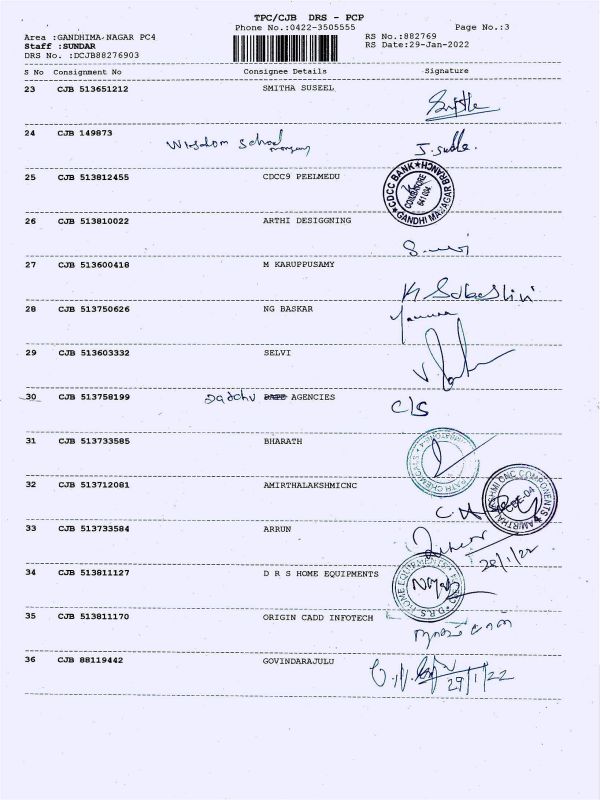 TPC/CJB DRS - PCP
Phone No.:0422-3505555
Page No.:3
Area :GANDHIMA-NAGAR PC4
RS No.:882769
Staff :SUNDAR
RS Date:29-Jan-2022
DRS No. :DCJB88276903
S No Consignment No Consignee Details Signature
23 CJB 513651212 SMITHA SUSEEL
24 CJB 149873
Wisdom School
J. Sudha.
25 CJB 513812455 CDCC9 PEELMEDU
CDCC BANK GANDHI MANAGAR BRANCH
COIMBATORE
641 004
26 CJB 513810022 ARTHI DESIGGNING
27 CJB 513600418 M KARUPPUSAMY
K Sabashini
28 CJB 513750626 NG BASKAR
29 CJB 513603332 SELVI
30 CJB 513758199 AGENCIES
C/S
31 CJB 513733585 BHARATH
32 CJB 513712081 AMIRTHALAKSHMICNC
AMIRTHALAKSHMI CNC COMPONENTS
CBE-04
33 CJB 513733584 ARRUN
28/1/22
34 CJB 513811127 D R S HOME EQUIPMENTS
D.R.S HOME EQUIPMENTS
35 CJB 513811170 ORIGIN CADD INFOTECH
36 CJB 88119442 GOVINDARAJULU
29/1/22